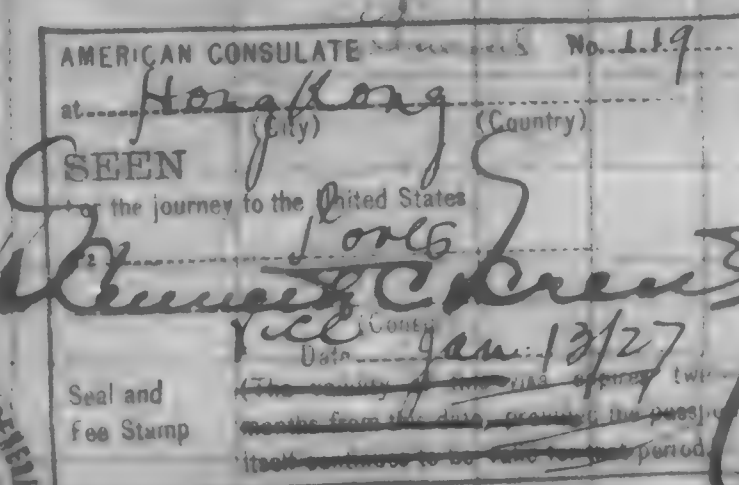 AMERICAN CONSULATE No. 119
at Hong Kong
(City) (Country)
SEEN
For the journey to the United States
only
Kenneth C Krentz
Vice (Consul
Date Jan. 13/27
Seal and
Fee Stamp
(The validity of this visa expires
months from this date, provided the
itself continues to be valid for that period.